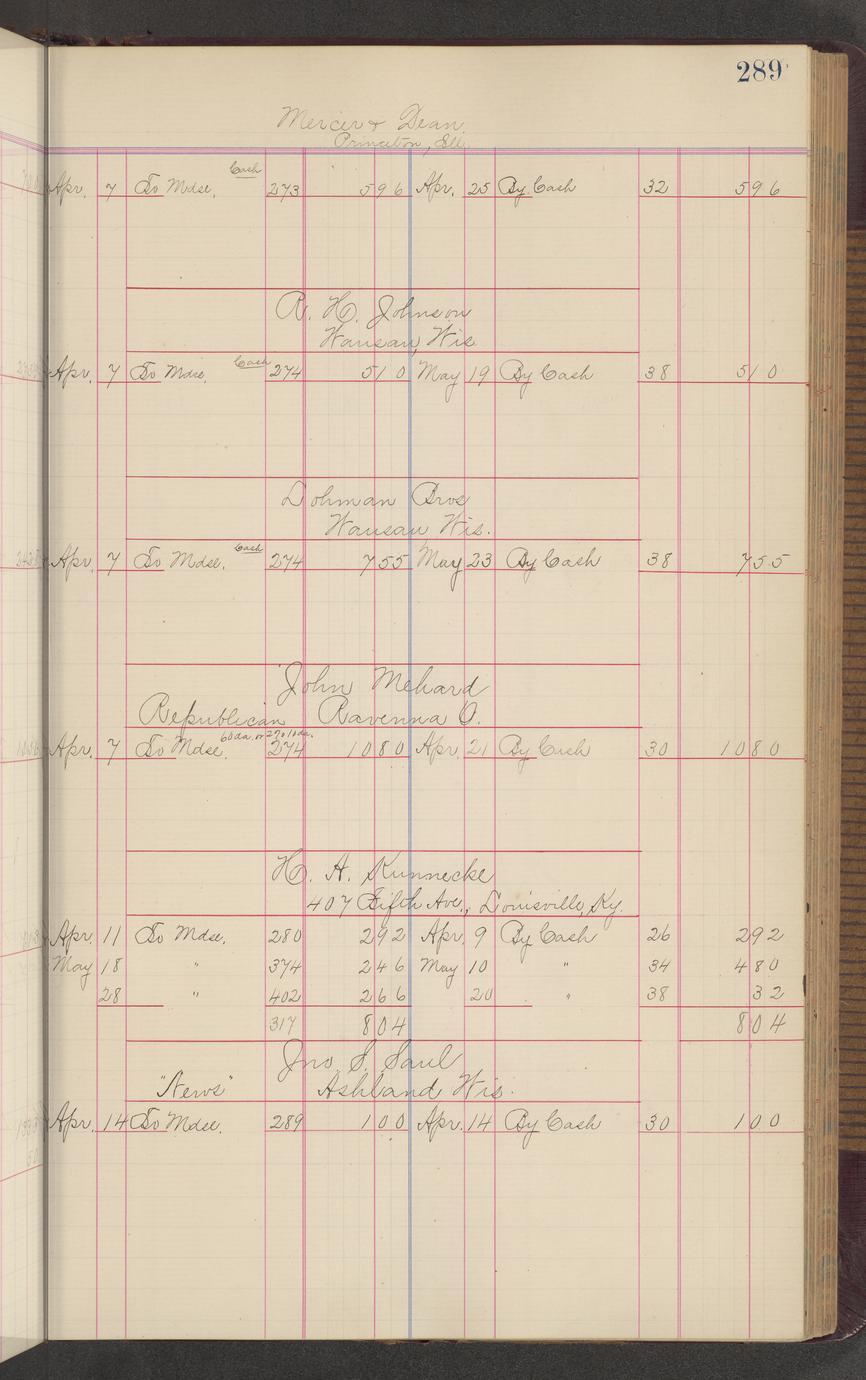 289
Mercer & Dean
Princeton, Ill.
Apr. 7 To Mdse. Cash 273 5 96 Apr. 25 By Cash 32 5 96
R. H. Johnson
Wausau, Wis
Apr. 7 To Mdse. Cash 274 5 10 May 19 By Cash 38 5 10
Lohman Bros
Wausau Wis.
Apr. 7 To Mdse. Cash 274 7 55 May 23 By Cash 38 7 55
John Mehard
Republican Ravenna O.
60 da. or 2% 10 da.
Apr. 7 To Mdse. 274 10 80 Apr. 21 By Cash 30 10 80
H. A. Kunnecke
407 Fifth Ave., Louisville, Ky.
Apr. 11 To Mdse. 280 2 92 Apr. 9 By Cash 26 2 92
May 18 " 374 2 46 May 10 " 34 4 80
28 " 402 2 66 20 " 38 32
317 8 04 8 04
Jno. S. Saul
"News" Ashland Wis.
Apr. 14 To Mdse. 289 1 00 Apr. 14 By Cash 30 1 00